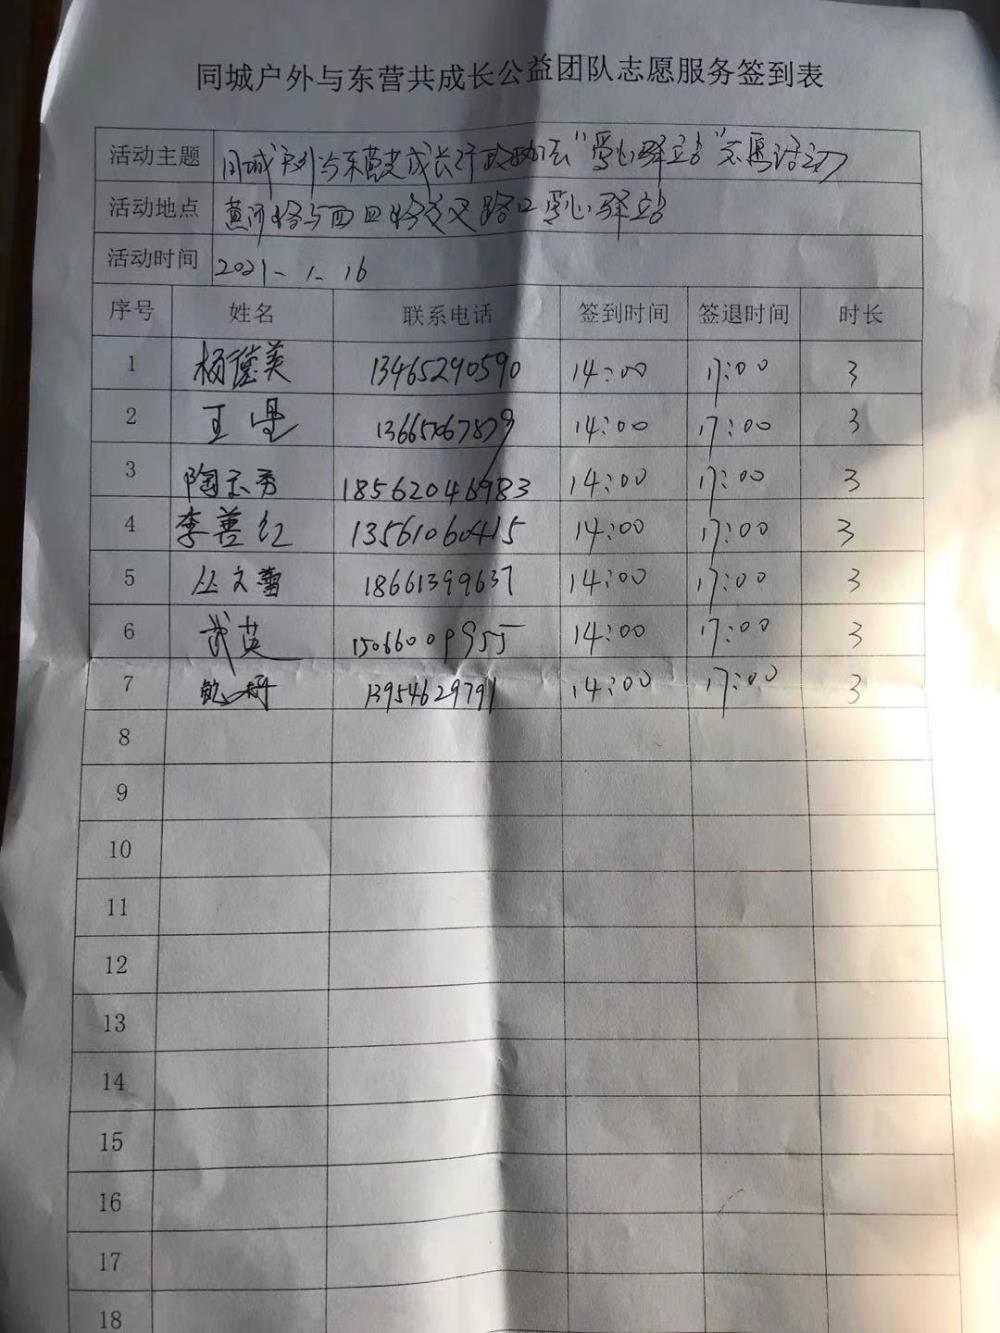 同城户外与东营共成长公益团队志愿服务签到表
活动主题 同城户外与东营共成长行政办公"爱心驿站"志愿活动
活动地点 黄河路与西四路交叉路口爱心驿站
活动时间 2021-1.16
序号 姓名 联系电话 签到时间 签退时间 时长
1 杨 英 13465290590 14:00 17:00 3
2 王 14:00 17:00 3
3 陶 秀 18562046983 14:00 17:00 3
4 李善红 13561060415 14:00 17:00 3
5 丛文蕾 18661399637 14:00 17:00 3
6 武英 15066009955 14:00 17:00 3
7 13954629791 14:00 17:00 3
8
9
10
11
12
13
14
15
16
17
18